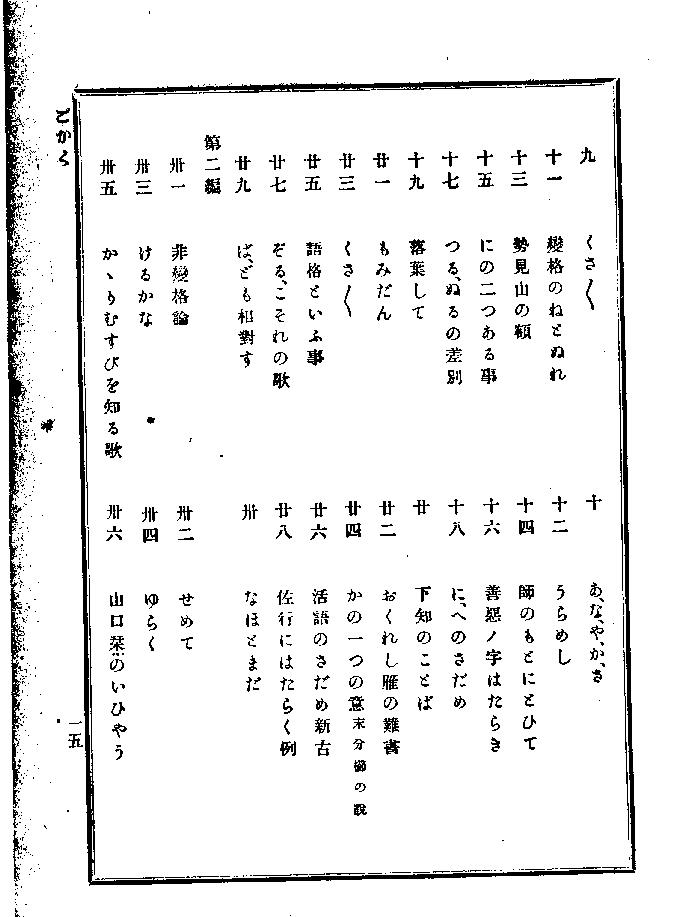 ごかく
九　くさ〴〵
十　あ、な、や、か、さ
十一　變格のねとぬれ
十二　うらめし
十三　勢見山の顧
十四　師のもとにとひて
十五　にの二つある事
十六　善惡ノ字はたらき
十七　つる、ぬるの差別
十八　に、へのさだめ
十九　落葉して
廿　下知のことば
廿一　もみだん
廿二　おくれし雁の難書
廿三　くさ〴〵
廿四　かの一つの意末分櫛の説
廿五　語格といふ事
廿六　活語のさだめ新古
廿七　ぞる、こそれの歌
廿八　佐行にはたらく例
廿九　ば、ども相對す
卅　なほとまだ
第二編
卅一　非變格論
卅二　せめて
卅三　けるかな
卅四　ゆらく
卅五　かゝりむすびを知る歌
卅六　山口栞のいひやう
一五